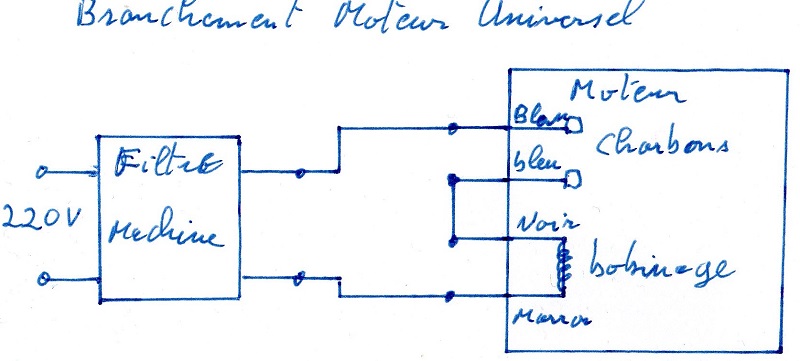 Branchement Moteur Universel
Moteur
Charbons
Blanc
bleu
Noir
bobinage
Marron
Filtre
Machine
220V